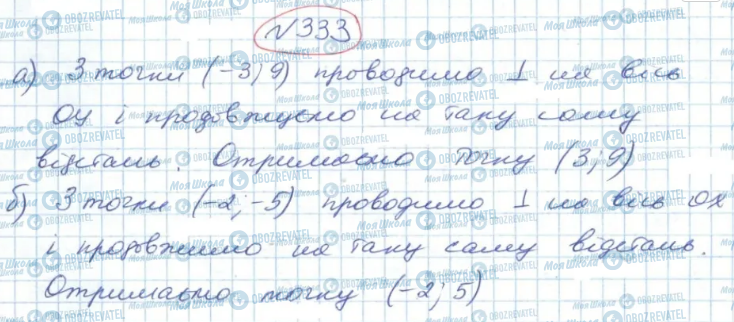 №333
а) З точки (-3; 9) проводимо ⊥ на вісь
Оу і продовжуємо на таку саму
відстань. Отримаємо точку (3; 9)
б) З точки (-2; -5) проводимо ⊥ на вісь ОХ
і продовжимо на таку саму відстань.
Отримаємо точку (-2; 5)